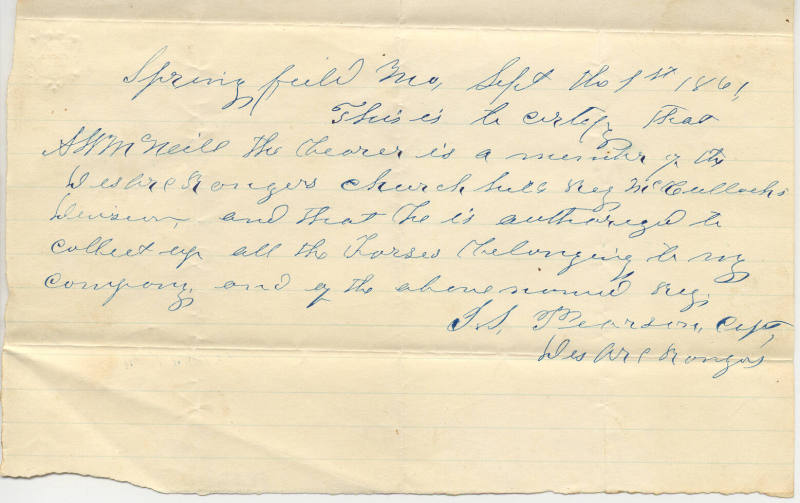 Springfield Mo, Sept the 1st 1861,
This is to certify that
A W McNeill the bearer is a member of the
Des Arc Rangers Churchhills Reg McCullochs
Division, and that he is authorized to
collect up all the horses belonging to my
company, and of the above named Reg,
S. S. Pearson, Capt,
Des Arc Rangers